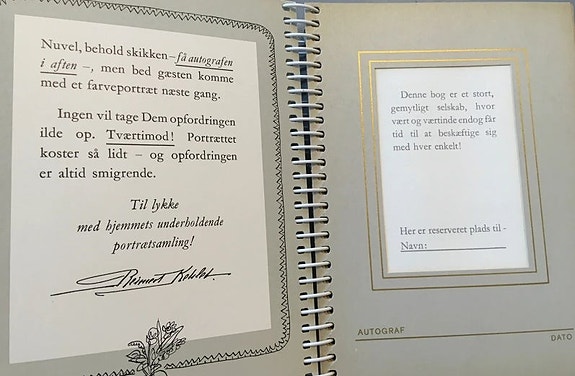 Nuvel, behold skikken – få autografen
i aften –, men bed gæsten komme
med et farveportræt næste gang.
Ingen vil tage Dem opfordringen
ilde op. Tværtimod! Portrættet
koster så lidt – og opfordringen
er altid smigrende.
Til lykke
med hjemmets underholdende
portrætsamling!
Denne bog er et stort,
gemytligt selskab, hvor
vært og værtinde endog får
tid til at beskæftige sig
med hver enkelt!
Her er reserveret plads til -
Navn:
AUTOGRAF
DATO